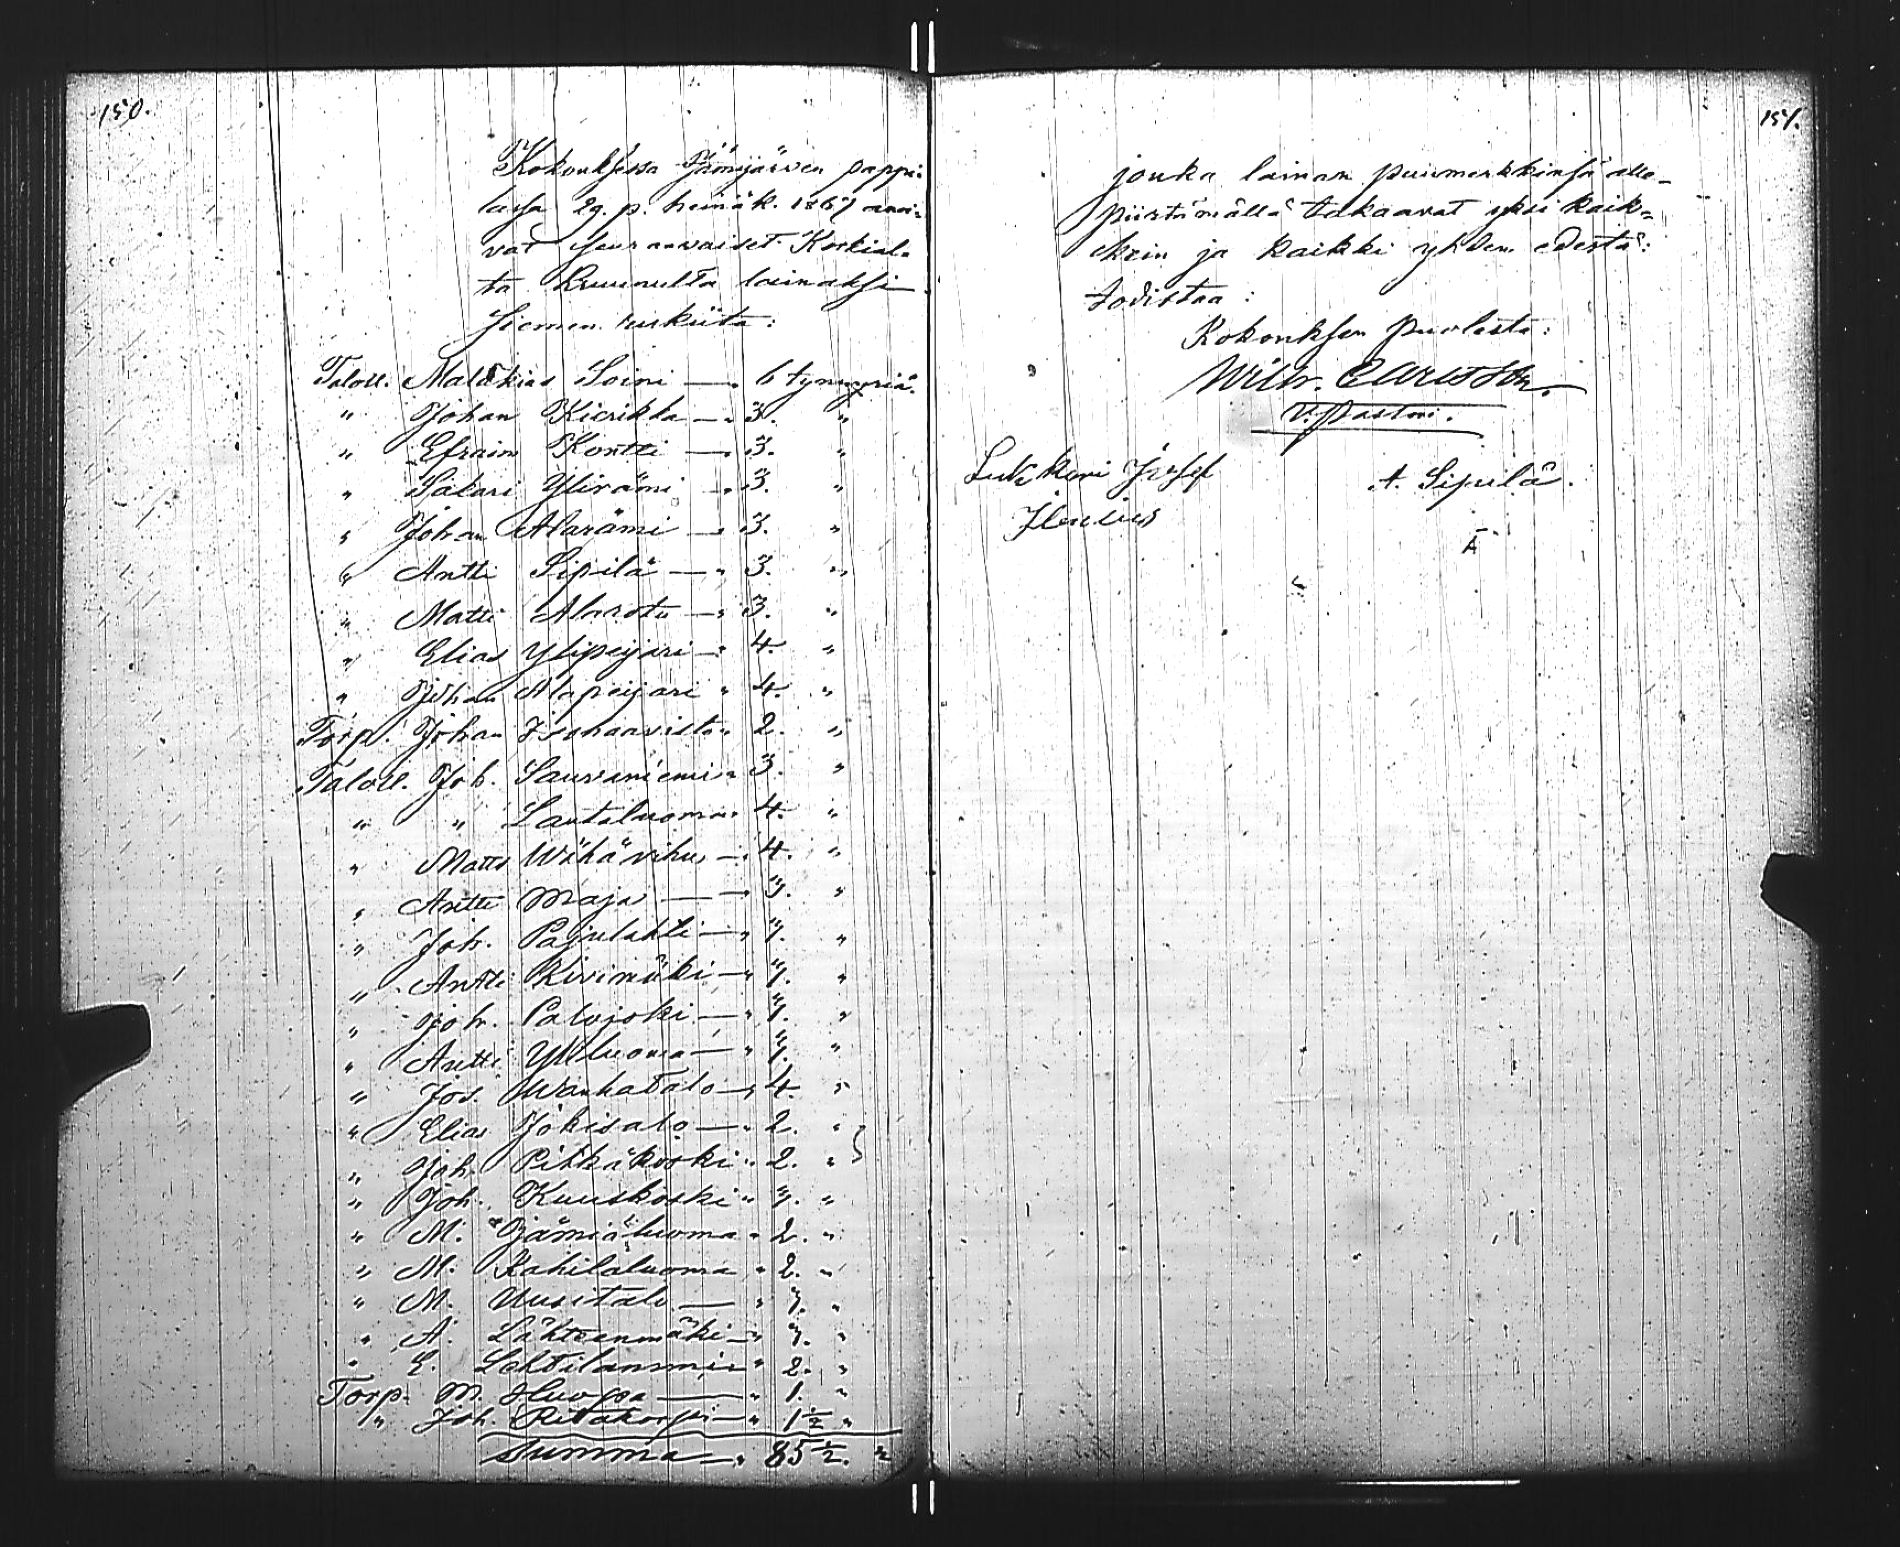 150.
Kokouksessa Jämijärven pappi-
lassa 29. p. heinäk. 1867 anoi-
vat seuraavaiset Korkial-
ta Kruunulta lainaksi
siemen rukiita:
Taloll. Malakias Soini — „ 6 tynnyriä.
„ Johan Kierikka — „ 3. „
„ Efraim Kontti — „ 3. „
„ Sakari Ylirämi — „ 3. „
„ Johan Alarämi — „ 3. „
„ Antti Sipilä — „ 3. „
„ Matti Alarotu — „ 3. „
„ Elias Ylipeijari — „ 4. „
„ Johan Alapeijari „ 4. „
Torp. Johan Isohaavisto „ 2. „
Taloll. Joh. Sauvaniemi „ 3. „
„ „ Lautaluoma „ 4. „
„ Matts Wähävihu — „ 4. „
„ Antti Maja — „ 3. „
„ Joh. Pajulahti — „ 3. „
„ Antti Kivimäki — „ 3. „
„ Joh. Palojoki — „ 3. „
„ Antti Yliluoma — „ 3. „
„ Jos. Wanhatalo — „ 4. „
„ Elias Jokisalo — „ 2. „
„ Joh. Pitkäkoski „ 2. „
„ Joh. Kuuskoski „ 3. „
„ M. Jämiäluoma „ 2. „
„ M. Kahilaluoma „ 2. „
„ M. Uusitalo — „ 3. „
„ A. Lähteenmäki — „ 3. „
„ E. Lehtilammi „ 2. „
Torp. M. — „ 1. „
„ Joh. Ritakorpi — „ 1½ „
Summa — „ 85½. „
151.
jonka lainan puumerkkinsä alle-
piirtämällä takaavat yksi kaik-
kein ja kaikki yhden edestä:
todistaa:
Kokouksen puolesta:
Wilh. Carlsson.
V. pastori.
Lukkari Josef
Ilenius
A. Sipilä.